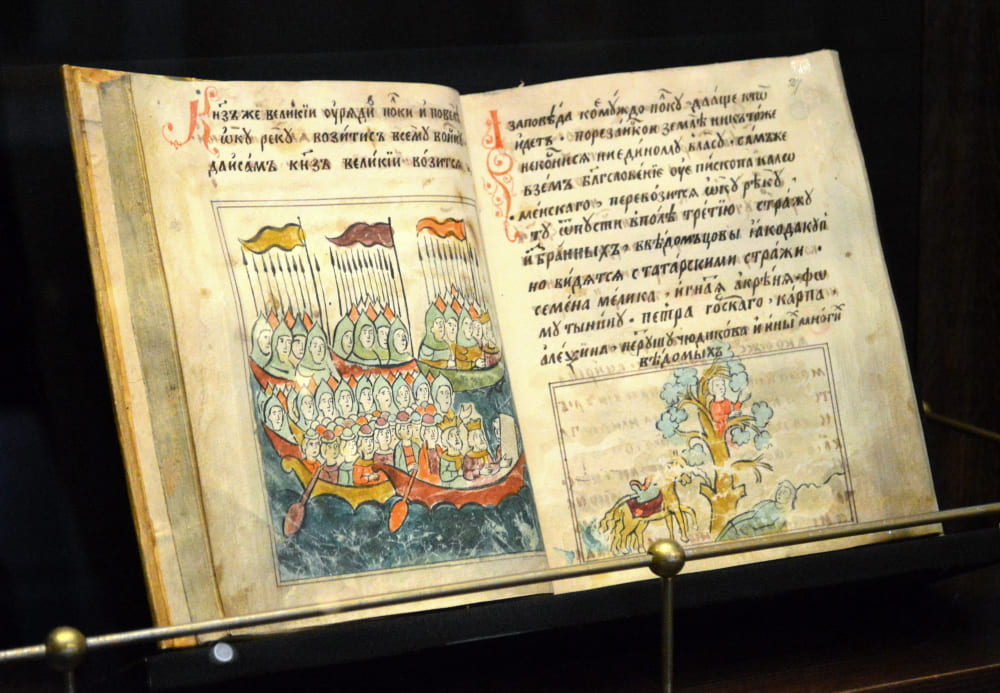 Кн҃зъ же великїи ѹрѧди полки и повелѣ
ѡку реку возитисѧ всему воинс
да и самъ кн҃зь великїи возитсѧ
заповѣда комуждо полку да аще кто
идетъ по резанской землѣ никтоже
не коснисѧ ни единому власу самъ же
вземъ благословенїе ѹ епископа коло
менскаго перевозитсѧ ѡку рѣку
ту ѿпусти в поле третїю стражу
избранныхъ вѣдомцовы ꙗко да куп
но видѧтсѧ с татарскими стражи
семена мелика игнаⷮѧ крѣнѧ фо
му тынину петра горскаго карпа
алеѯина петрушу чюдикова и иныⷯ многиⷯ
вѣдомыхъ